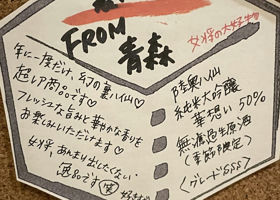 FROM
青森
女将の大好き
年に一度だけ、幻の裏ハ仙♡
超レア商品です♡
フレッシュな旨みと華やかな香りを
お楽しみいただけます♡
女将、あんまり出したくない
逸品です 笑
陸奥八仙
純米大吟醸
華想い50%
無濾過生原酒
(季節限定)